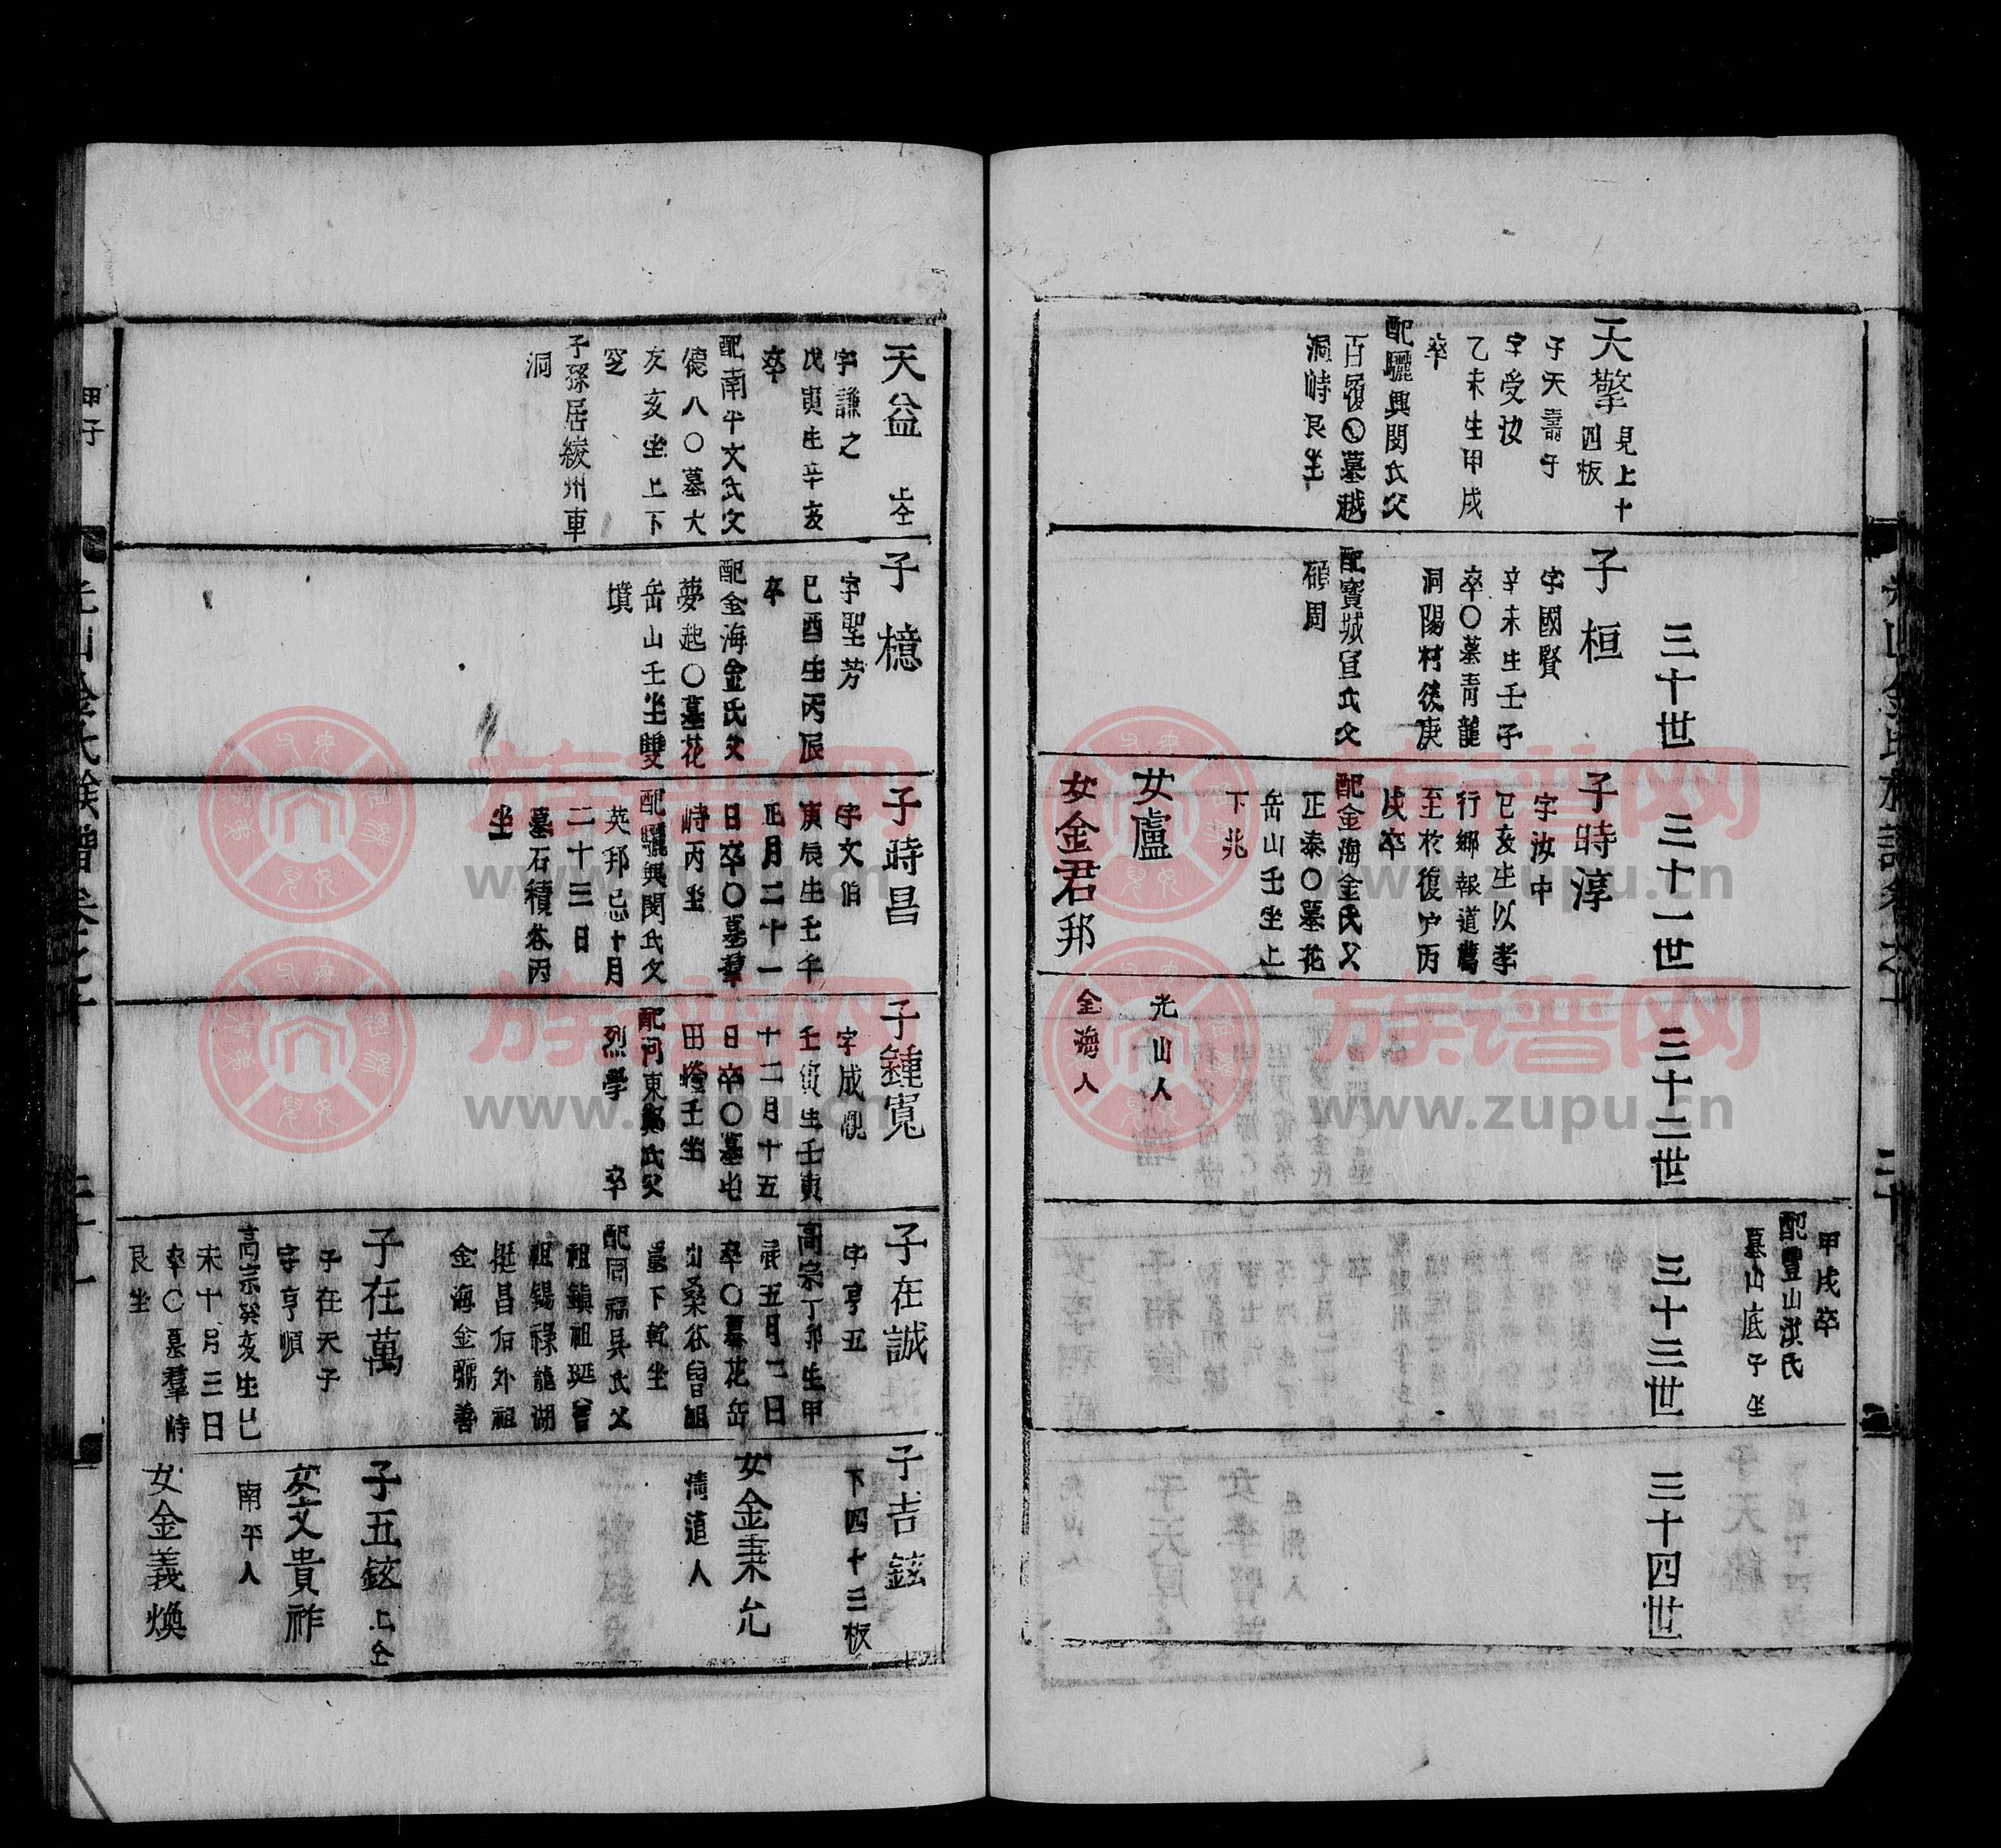 甲戌卒
配豊山洪氏
墓山底子坐
三十世
三十一世
三十二世
三十三世
三十四世
天擎
見上十
四板
子天壽子
字受汝
乙未生甲戌
卒
配驪興閔氏父
百履〇墓越
洞峙艮坐
子桓
字國賢
辛未生壬子
卒〇墓青龍
洞陽村後庚
配寶城宣氏父
碩周
子時淳
字汝中
己亥生以孝
行鄉報道薦
至於復户丙
戌卒
配金海金氏父
正泰〇墓花
岳山壬坐上
下兆
女盧
光山人
女金君邦
金海人
天益
上仝
字謙之
戊寅生辛亥
卒
配南平文氏父
德八〇墓大
友亥坐上下
空
子孫居綾州車
洞
子檍
字聖芳
己酉生丙辰
卒
配金海金氏父
夢起〇墓花
岳山壬坐雙
墳
子時昌
字文伯
庚辰生壬午
正月二十一
日卒〇墓羣
峙丙坐
配驪興閔氏父
英邦忌十月
二十三日
墓石積谷丙
坐
子鍾寬
字成
壬寅生壬寅
十二月十五
日卒〇墓屯
田嶝壬坐
配河東鄭氏父
烈學 卒
子在誠
字亨五
高宗丁卯生甲
辰五月七日
卒〇墓花岳
山桑谷曾祖
墓下乾坐
配同福吳氏父
祖鎮祖珽曾
祖錫祿龍湖
挺昌后外祖
金海金
善
子在萬
子在天子
字亨順
高宗癸亥生已
未十月三日
卒〇墓羣峙
艮坐
子吉鉉
下四十三板
女金秉允
清道人
子五鉉
上仝
女文貴祚
南平人
女金義煥
族谱网
www.zupu.cn
族谱网
www.zupu.cn
族谱网
www.zupu.cn
族谱网
www.zupu.cn